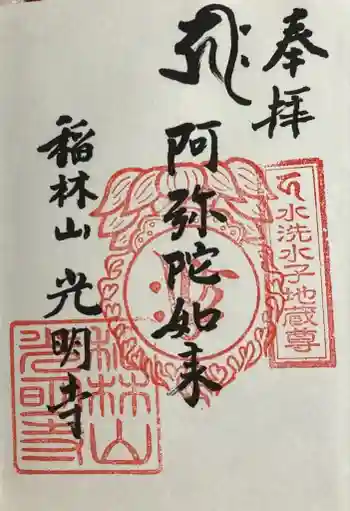 奉拝
水洗水子地蔵尊
阿弥陀如来
稲林山 光明寺
稲林山
光明寺